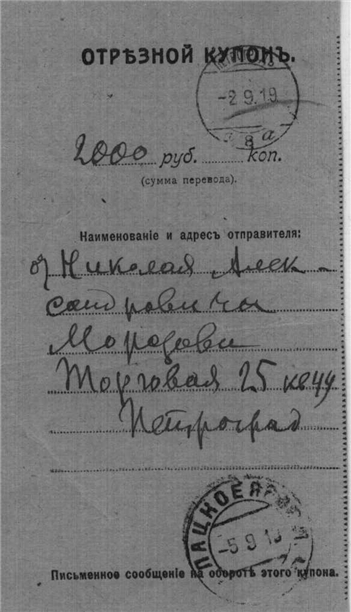 ОТРѢЗНОЙ КУПОНЪ.
-2 9.19
8 а
2000 руб. коп.
(сумма перевода).
Наименованіе и адресъ отправителя:
от Николая Алек-
сандровича
Морозова
Торговая 25 кв
Петроград
-5 9 19
Письменное сообщеніе на оборотѣ этого купона.